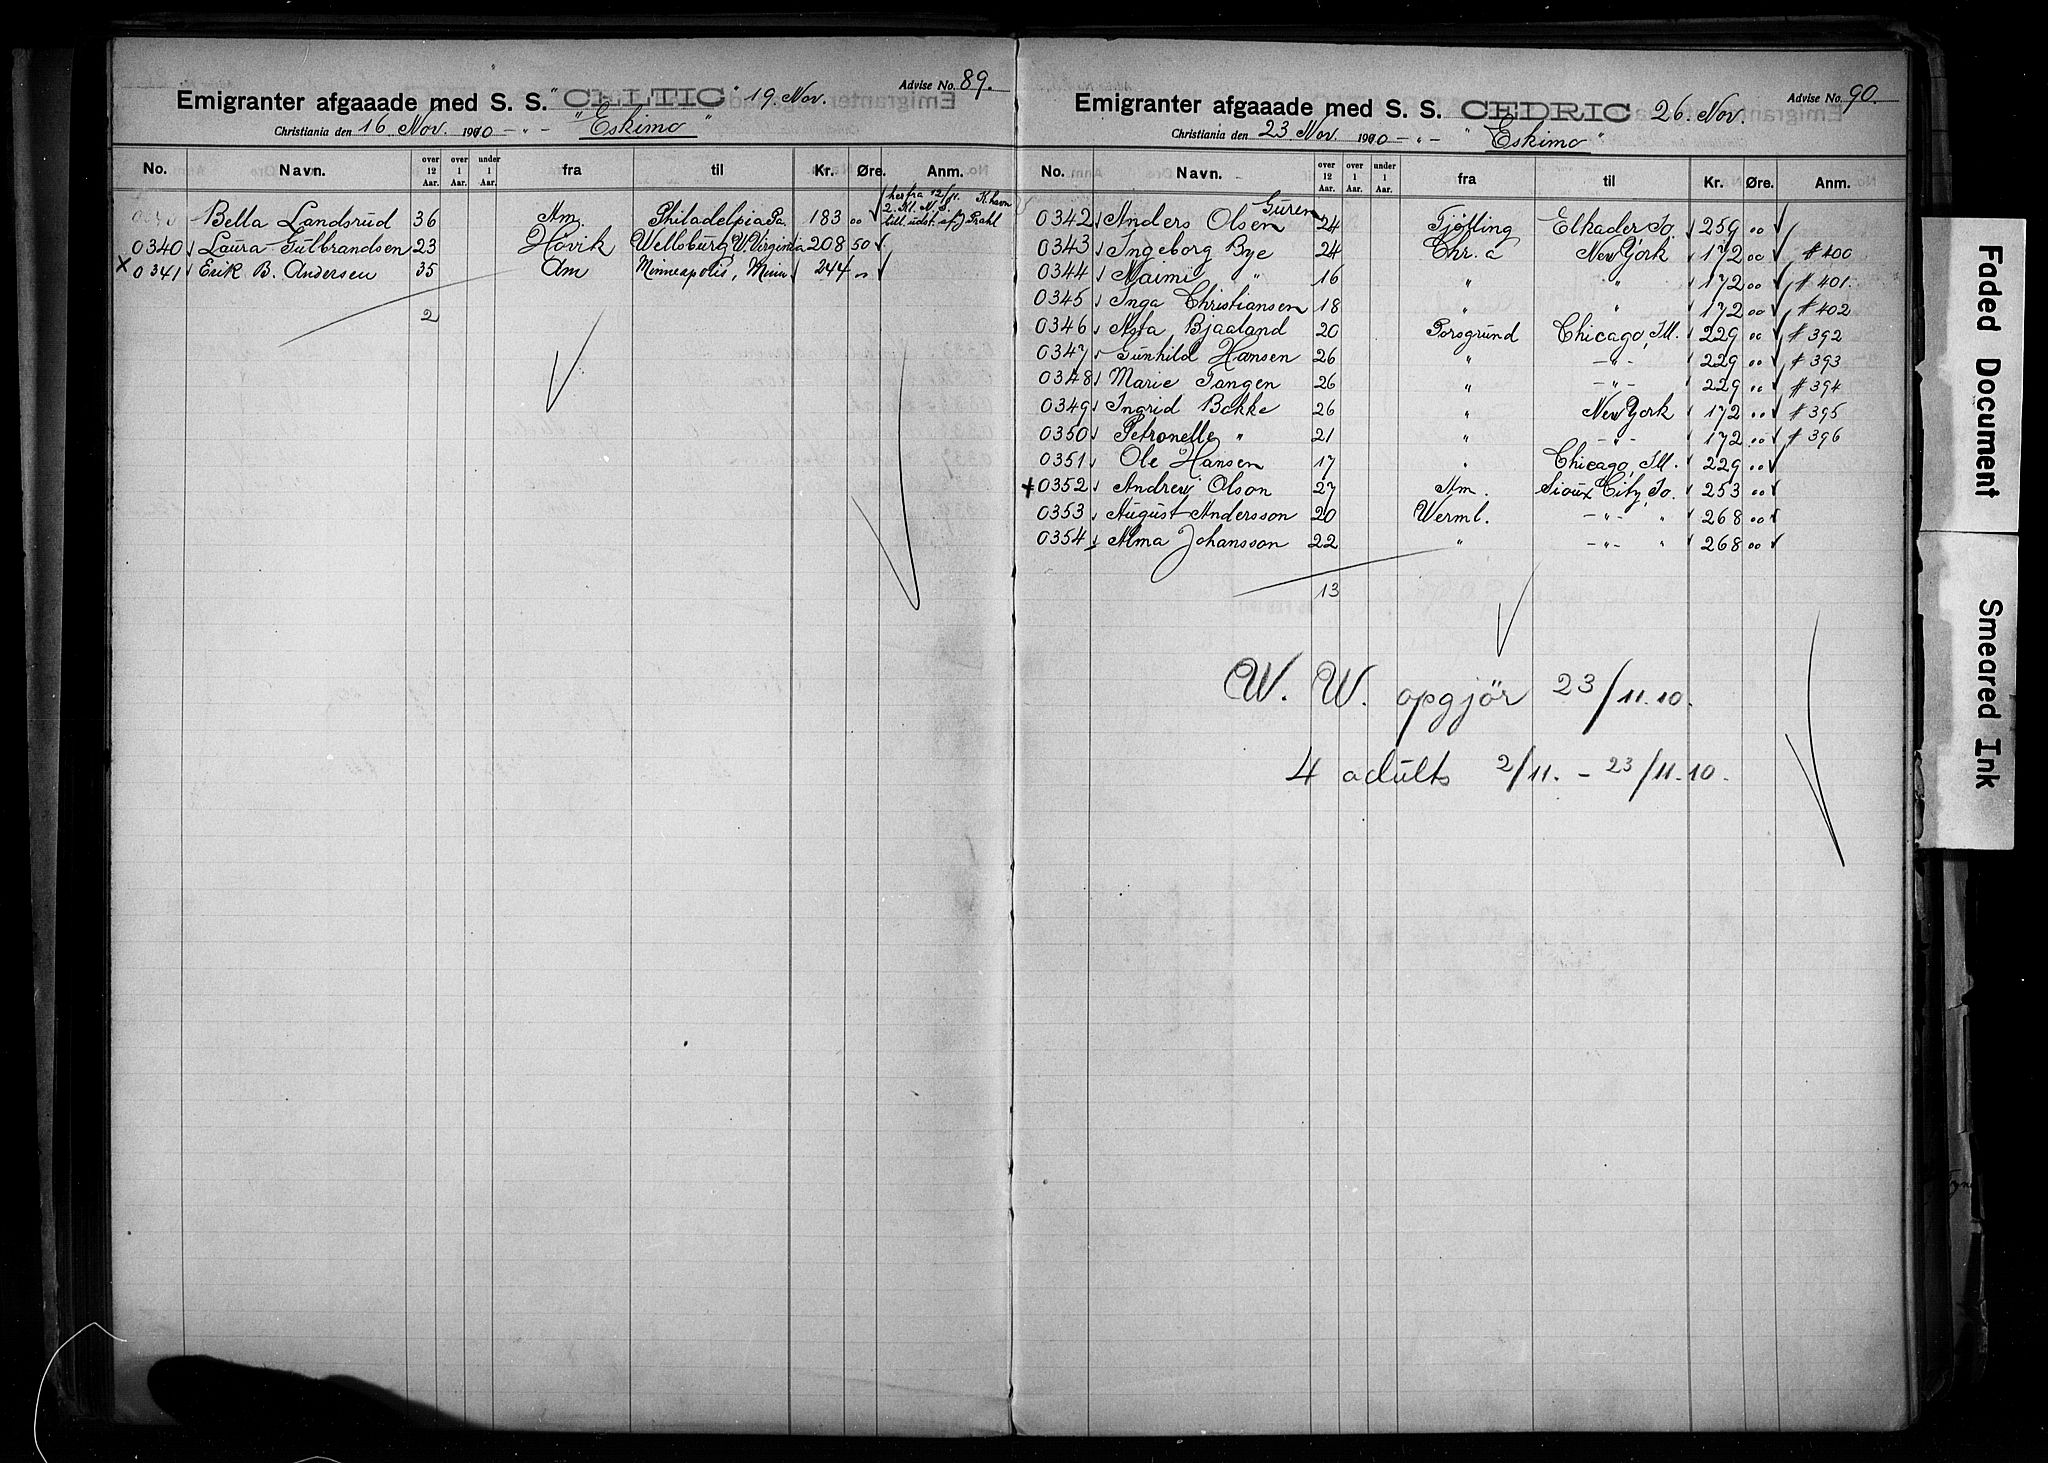 Advise No. 89.
Emigranter afgaaade med S. S. "CELTIC" 19. Nov.
Christiania den 16 Nov. 1910 – " – "Eskimo"
No. Navn. over 12 Aar. over 1 Aar. under 1 Aar. fra til Kr. Øre. Anm.
herfra 12/11. K.havn
2. Kl. N. S.
Bella Landsrud 36 Am. Philadelpia Pa. 183 00 till. udst. af J Prahl
0340 Laura Gulbrandsen 23 Hövik Wellsburg W. Virginia 208 50
x 0341 Erik B. Andersen 35 Am Minneapolis, Minn 244 "
2
Advise No. 90.
Emigranter afgaaade med S. S. CEDRIC 26. Nov.
Christiania den 23 Nov. 1910 – " – "Eskimo"
No. Navn. over 12 Aar. over 1 Aar. under 1 Aar. fra til Kr. Øre. Anm.
Guren
0342 Anders Olsen 24 Tjøtling Elkader Io. 259 00
0343 Ingeborg Bye 24 Chr.a New York 172 00 # 400
0344 Naimi " 16 " " 172 00 # 401.
0345 Inga Christiansen 18 " " 172 00 # 402
0346 Asta Bjaaland 20 Porsgrund Chicago, Ill. 229 00 # 392
0347 Gunhild Hansen 26 " – " – 229 00 # 393
0348 Marie Tangen 26 " – " – 229 00 # 394
0349 Ingrid Bakke 26 " New York 172 00 # 395
0350 Petronelle " 21 " – " – 172 00 # 396
0351 Ole Hansen 17 " Chicago, Ill. 229 00
x 0352 Andrew Olson 27 Am. Sioux City, Io. 253 00
0353 August Andersson 20 Werml. – " – " 268 00
0354 Alma Johansson 22 " – " – " 268 00
13
W. W. opgjör 23/11.10.
4 adults 2/11. – 23/11.10.
Faded Document
Smeared Ink